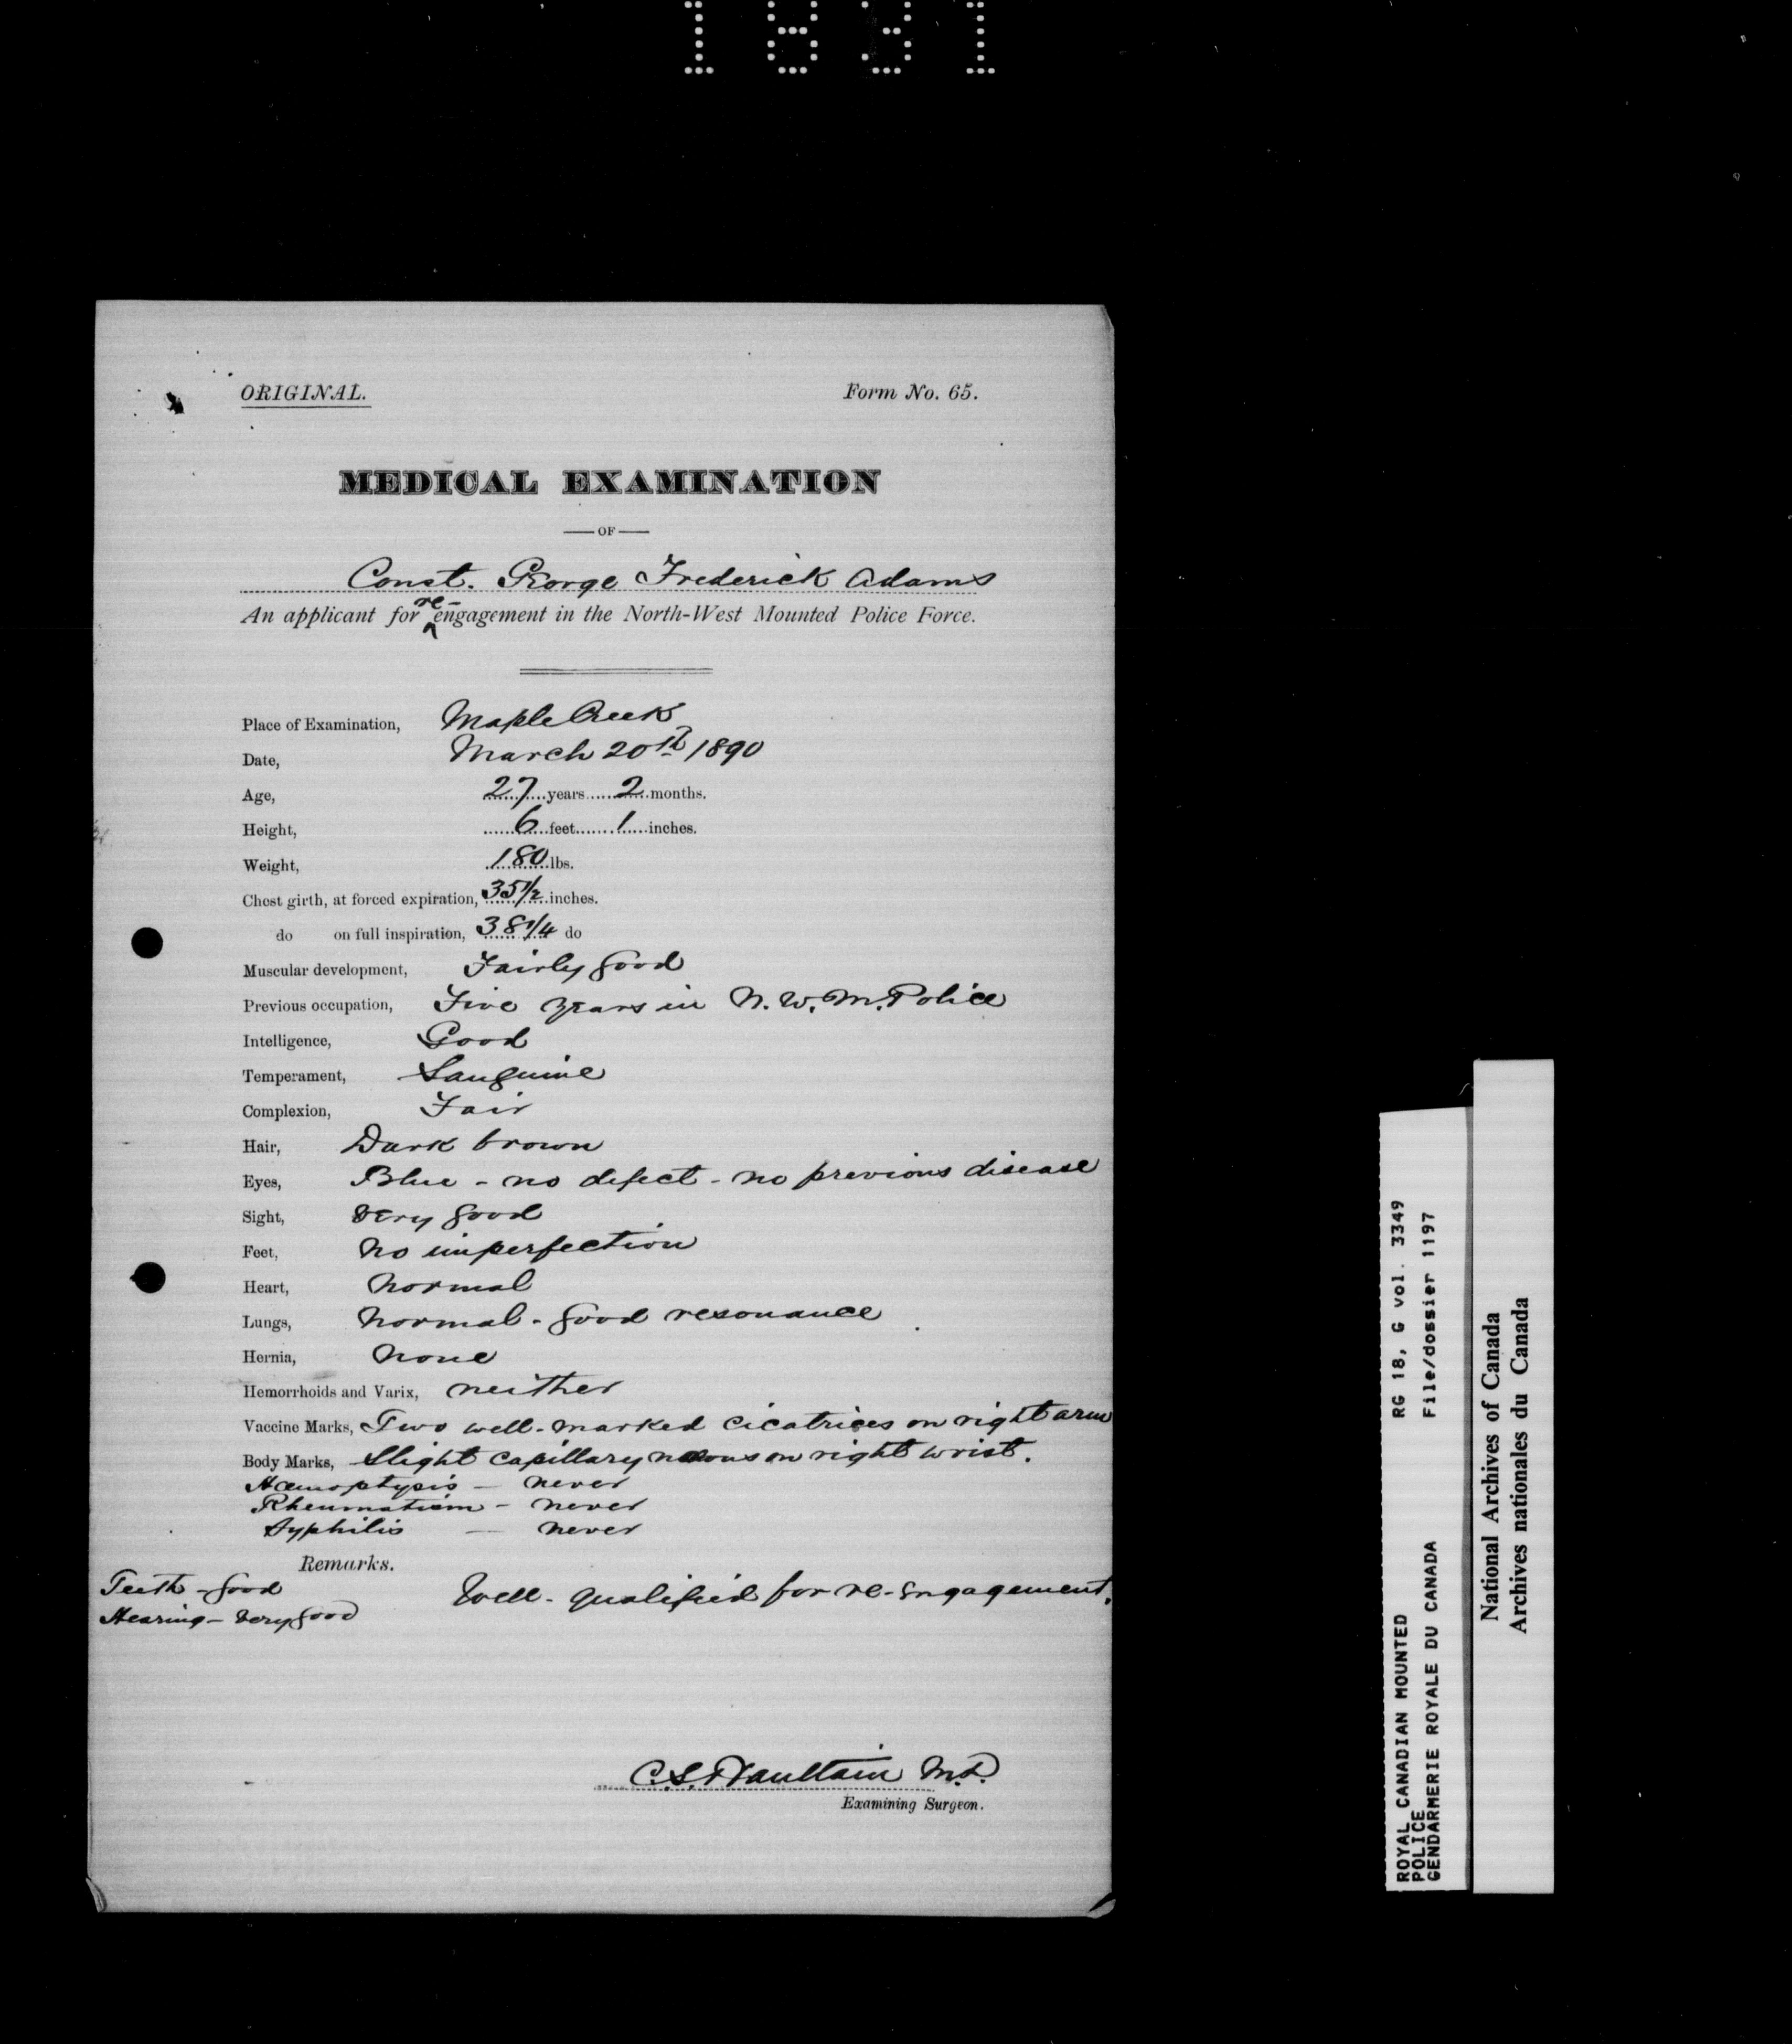 1831
ORIGINAL. Form No. 65.
MEDICAL EXAMINATION
OF
Const. George Frederick Adams
re-
An applicant for engagement in the North-West Mounted Police Force.
Place of Examination, Maple Creek
Date, March 20th 1890
Age, 27 years 2 months.
Height, 6 feet 1 inches.
Weight, 180 lbs.
Chest girth, at forced expiration, 35 1/2 inches.
do on full inspiration, 38 1/4 do
Muscular development, Fairly good
Previous occupation, Five years in N. W. M. Police
Intelligence, Good
Temperament, Sanguine
Complexion, Fair
Hair, Dark brown
Eyes, Blue - no defect - no previous disease
Sight, Very good
Feet, No imperfection
Heart, Normal
Lungs, Normal - Good resonance
Hernia, None
Hemorrhoids and Varix, neither
Vaccine Marks, Two well-marked cicatrices on right arm
Body Marks, Slight capillary naevus on right wrist.
Haemoptysis - never
Rheumatism - never
Syphilis - never
Remarks.
Teeth - Good
Well-qualified for re-engagement.
Hearing - very good
C. S. Haultain M.D.
Examining Surgeon.
ROYAL CANADIAN MOUNTED RG 18, G vol. 3349
POLICE
GENDARMERIE ROYALE DU CANADA File/dossier 1197
National Archives of Canada
Archives nationales du Canada